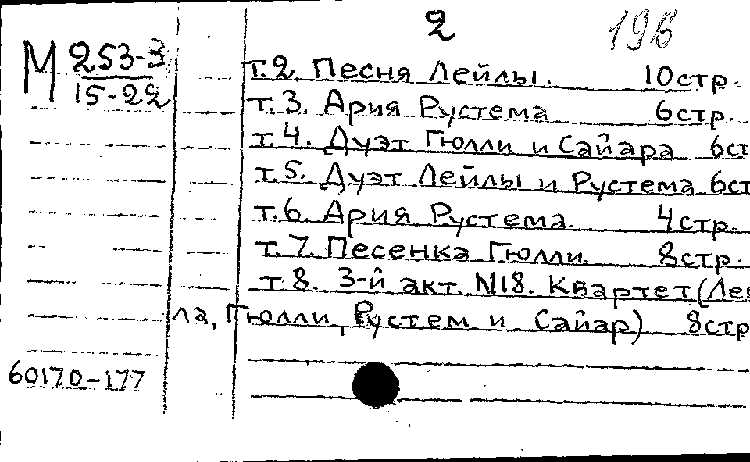 2 196
М 253-3
15-22
т.2. Песня Лейлы. 10стр.
т.3. Ария Рустема 6стр.
т.4. Дуэт Гюлли и Сайара 6ст
т.5. Дуэт Лейлы и Рустема 6ст
т.6. Ария Рустема. 4стр.
т.7. Песенка Гюлли. 8стр.
т.8. 3-й акт. №18. Квартет(Лей
ла, Гюлли, Рустем и Сайар) 8стр
60170-177